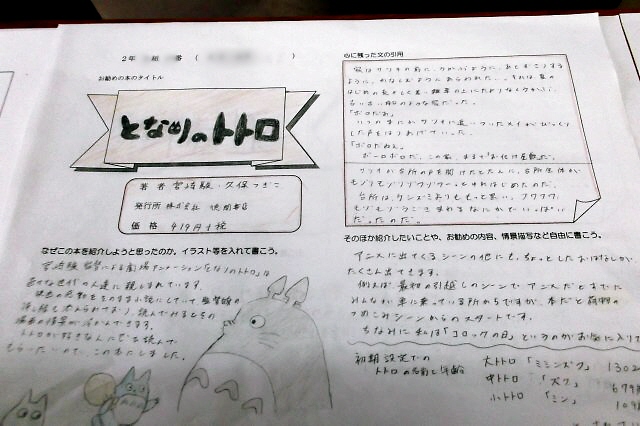 2年 組 番 (
お勧めの本のタイトル
となりのトトロ
著者 宮崎駿・久保つぎこ
発行所 株式会社 徳間書店
価格 419円+税
なぜこの本を紹介しようと思ったのか。イラスト等を入れて書こう。
宮崎駿 監督による劇場アニメーション「となりのトトロ」は
色々な世代の人達に親しまれています。
映画の感動をそのまま小説にしていて
読んでみるとその
映画の情景が浮かんできます。
トトロが好きな人にも読んで
もらいたいので、この本にしました。
心に残った文の引用
家はサツキの前に、うかぶように、
ように、あらわれた。それは、夏の
はじめの
古い古い船のような家だった。
「ボロだぁ」
いつの間にかサツキに追いついたメイがびっくり
した声をはりあげていった。
「ボロだねえ。
ボーロボロだ、この家、まるで「お化け屋敷」だ。
サツキが台所の戸を開けたとたんに、台所全体が
モゾモゾゾゾゾワワワーっとゆれはじめたのだ。
台所は、
モゾモゾうごきまわるなにかでいっぱい
だったのだ。
そのほか紹介したいことや、お勧めの内容、情景描写など自由に書こう。
アニメに出てくるシーンの他にも、ちょっとしたおはなしが
たくさん出てきます。
例えば 最初の引越しのシーンで アニメだとすでに
みんないい 車に乗っている所からですが、本だと荷物の
つめこみシーンからのスタートです。
ちなみに 私は「コロッケの日」というのがお気に入りです
初期設定での
トトロの名前と年齢
大トトロ 「ミミンズク」 1302
中トトロ 「ズク」 679
小トトロ 「ミン」 109